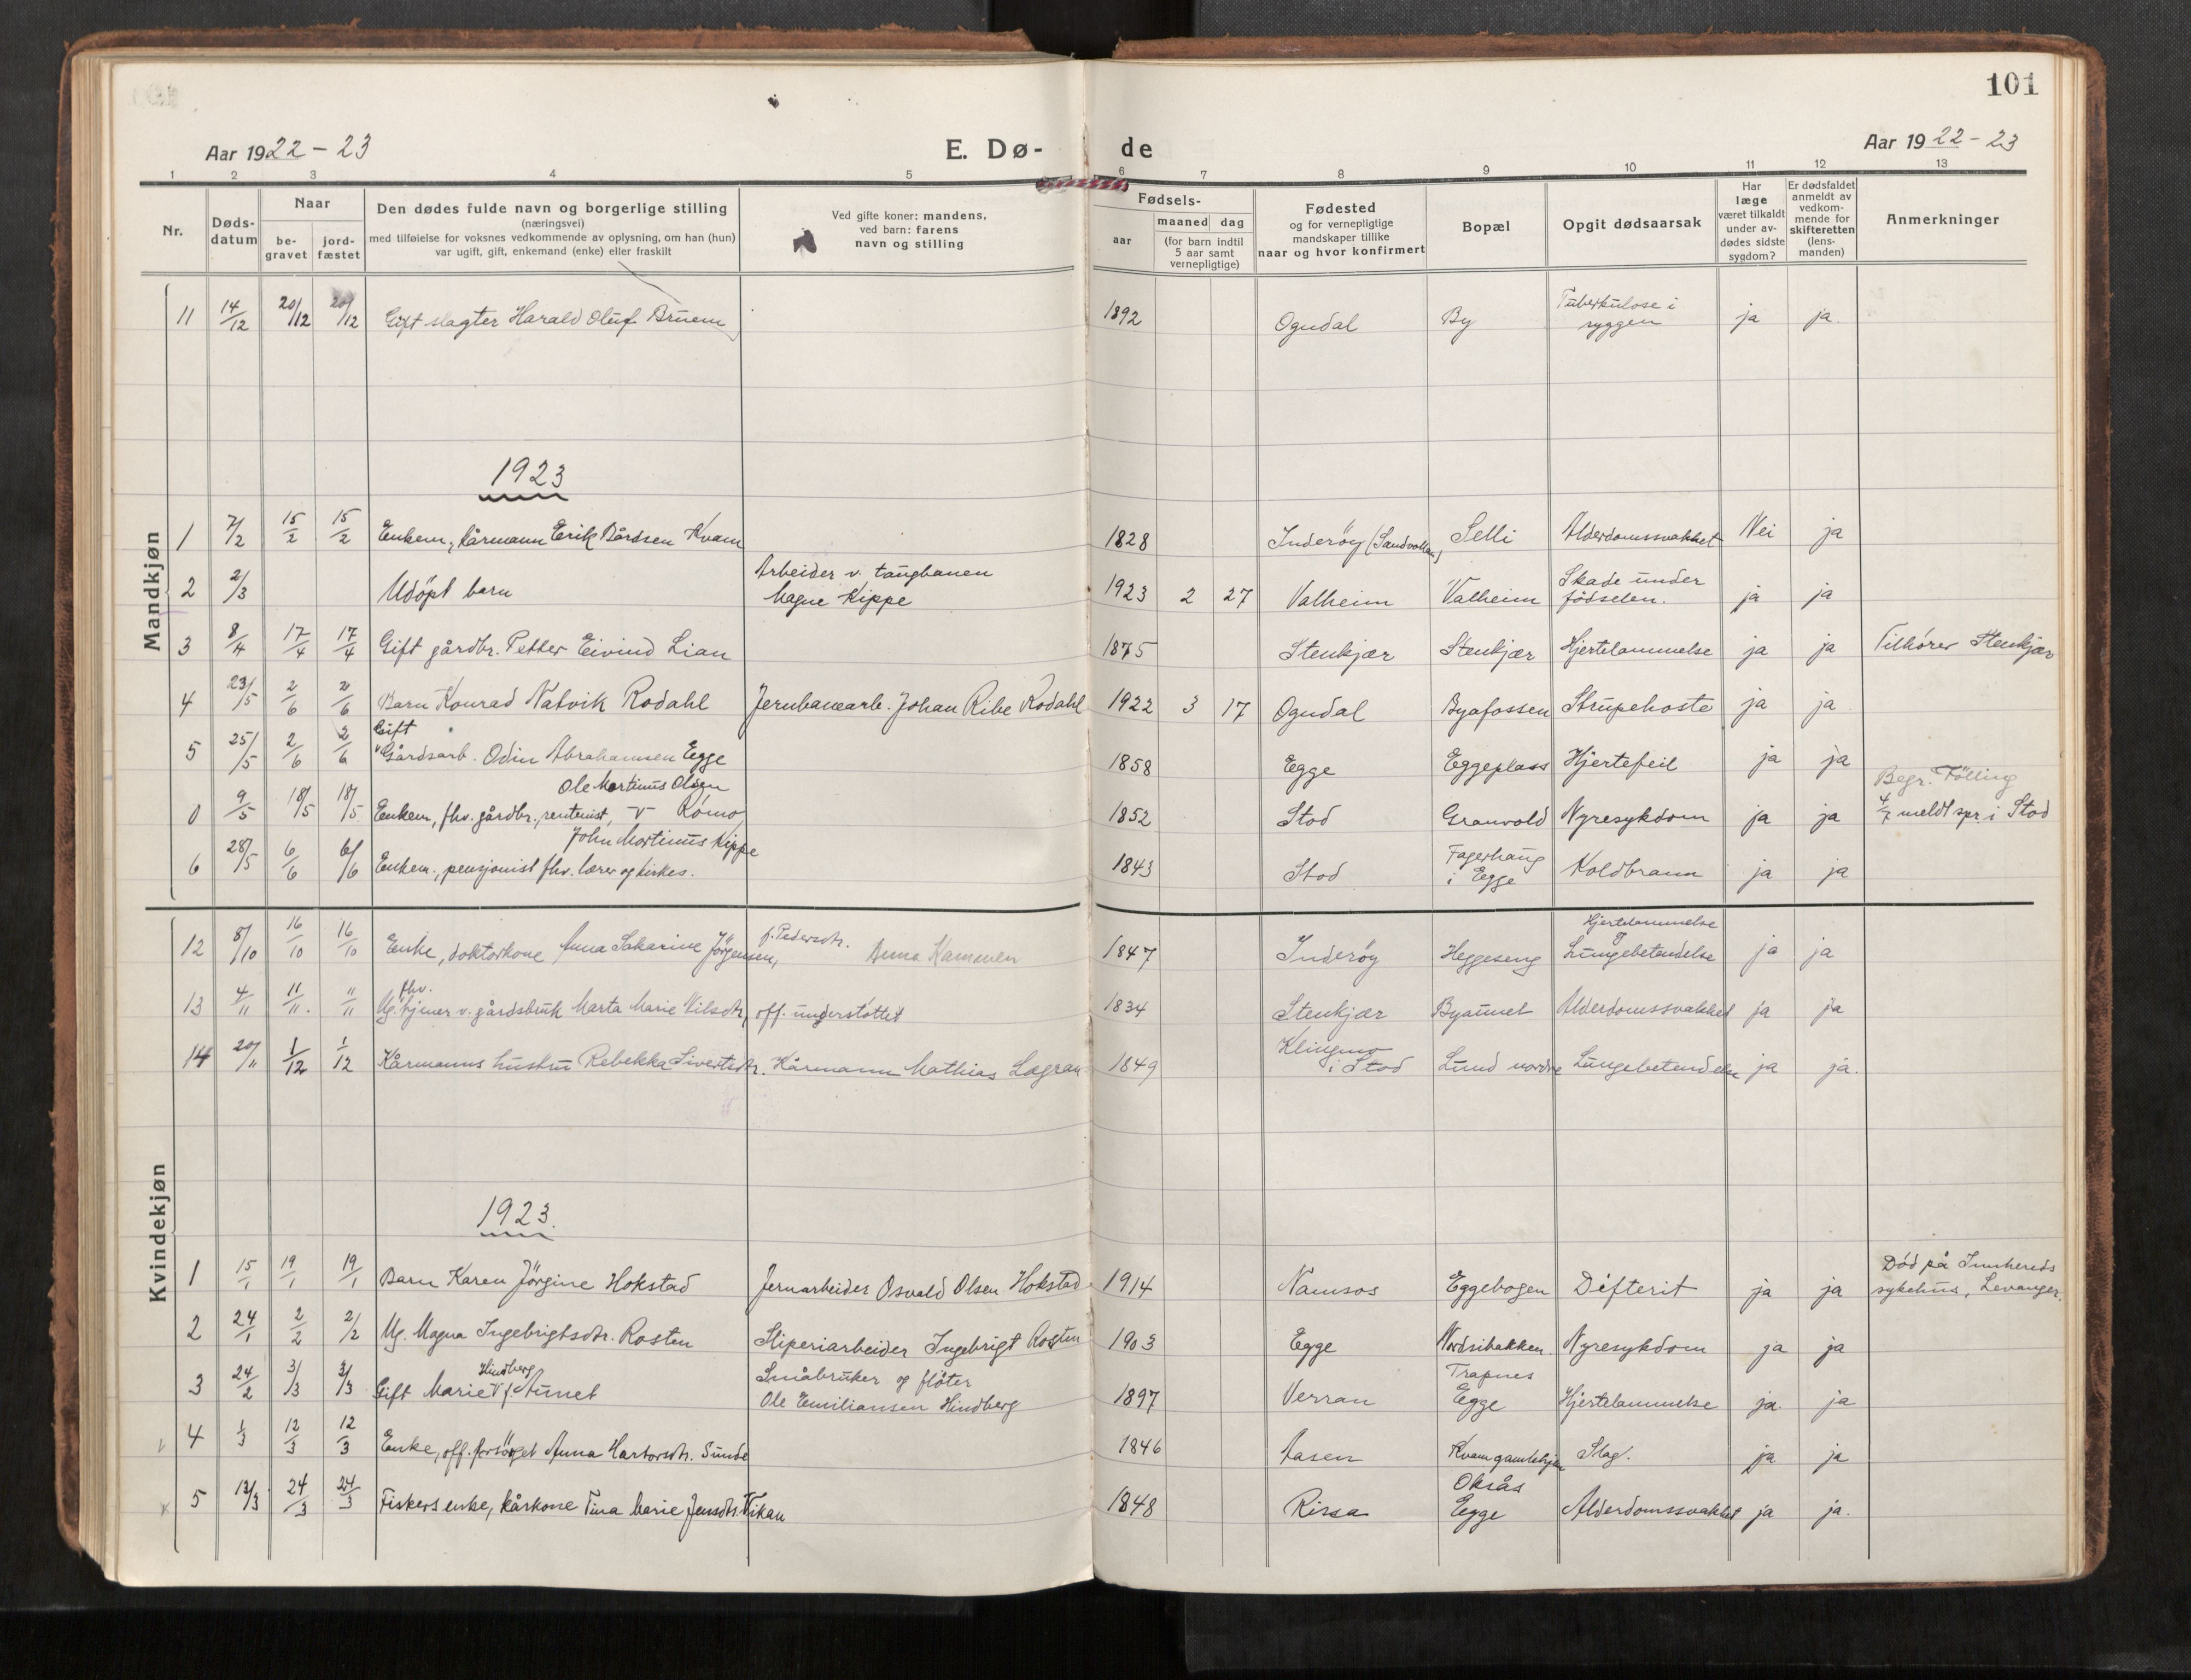 101
Aar 1922-23 E. Dø- de Aar 1922-23
1 2 3 4 5 6 7 8 9 10 11 12 13
Nr. Døds-datum Naar be-gravet jord-fæstet Den dødes fulde navn og borgerlige stilling (næringsvei) med tilføielse for voksnes vedkommende av oplysning, om han (hun) var ugift, gift, enkemand (enke) eller fraskilt Ved gifte koner: mandens, ved barn: farens navn og stilling Fødsels- aar maaned dag (for barn indtil 5 aar samt vernepligtige) Fødested og for vernepligtige mandskaper tillike naar og hvor konfirmert Bopæl Opgit dødsaarsak Har læge været tilkaldt under av-dødes sidste sygdom? Er dødsfaldet anmeldt av vedkom-mende for skifteretten (lens-manden) Anmerkninger
Mandkjøn
11 14/12 20/12 20/12 Gift slagter Harald Oluf Bruem 1892 Ogndal By Tuberkulose i ryggen ja ja.
1923
1 7/2 15/2 15/2 Enkem, kårmann Erik Bårdsen Kvam 1828 Inderöy (Sandvollan) Selli Alderdomssvakhet Nei ja
2 2/3 Udöpt barn Arbeider v. taugbanen Magne Kippe 1923 2 27 Valheim Valheim Skade under födselen. ja ja
3 8/4 17/4 17/4 Gift gårdbr. Petter Eivind Lian 1875 Stenkjær Stenkjær Hjertelammelse ja ja Tilhører Stenkjær
4 23/5 2/6 2/6 Barn Konrad Natvik Rodahl Jernbanearb. Johan Ribe Rodahl 1922 3 17 Ogndal Byafossen Strupehoste ja ja
5 25/5 2/6 2/6 Gift Gårdsarb. Odin Abrahamsen Egge 1858 Egge Eggeplass Hjertefeil ja ja
0 9/5 18/5 18/5 Enkem, fhv. gårdbr., rentenist, Ole Martinus Olsen Rømo 1852 Stod Granvold Nyresykdom ja ja Begr. Fölling 4/7 meldt spr. i Stod
6 28/5 6/6 6/6 Enkem., pensjonist fhv. lærer og kirkes. John Mortinus Kippe 1843 Stod Fagerhaug i Egge Koldbrann ja ja
Kvindekjøn
12 8/10 16/10 16/10 Enke, doktorkone Anna Sakarine Jörgensen, f. Pedersdtr. Anna 1847 Inderöy Heggeseng Hjertelammelse og Lungebetendelse ja ja
13 4/11 11/11. 11/11 Ug. fhv. tjener v. gårdsbruk Marta Marie Nilsdtr, off. understöttet 1834 Stenkjær Byaunet Alderdomssvakhet ja ja
14 20/11 1/12 1/12 Kårmanns hustru Rebekka Sivertsdtr. Kårmann Mathias Lægran 1849 Klingmo i Stod Lund nordre Lungebetendelse ja ja.
1923.
1 15/1 19/1 19/1 Barn Karen Jörgine Hokstad Jernarbeider Osvald Olsen Hokstad 1914 Namsos Eggebogen Difterit ja ja Död på Innherids sykehus, Levanger.
2 24/1 2/2 2/2 Ug. Magna Ingebrigtsdtr. Rosten Sliperiarbeider Ingebrigt Rosten 1903 Egge Nordsibakken Nyresykdom ja ja
3 24/2 3/3 3/3 Gift Marie Hindberg f. Aunet Småbruker og flöter Ole Emiliansen Hindberg 1897 Verran Trapnes Egge Hjertelammelse ja ja
4 1/3 12/3 12/3 Enke, off. forsörget Anna Sunde 1846 Aasen Slag. ja ja
5 13/3 24/3 24/3 Fiskers enke, kårkone Tina Marie Jensdtr. Vikan 1848 Rissa Oksås Egge Alderdomssvakhet ja ja.